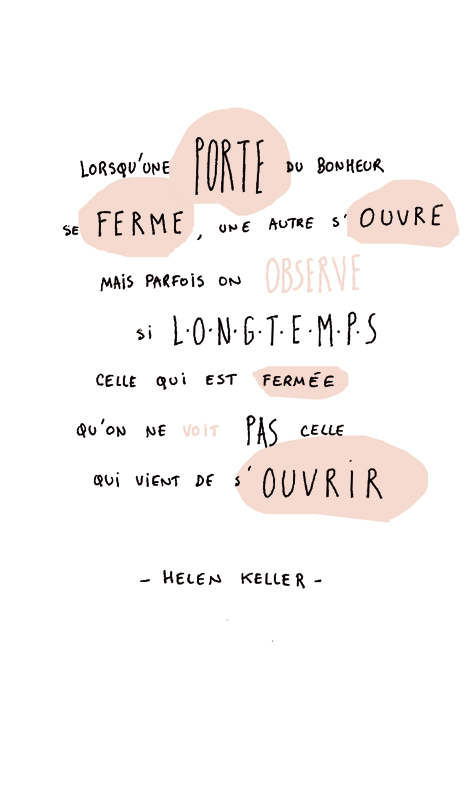 LORSQU'UNE PORTE DU BONHEUR
SE FERME, UNE AUTRE S'OUVRE
MAIS PARFOIS ON OBSERVE
SI L.O.N.G.T.E.M.P.S
CELLE QUI EST FERMÉE
QU'ON NE VOIT PAS CELLE
QUI VIENT DE S'OUVRIR
- HELEN KELLER -